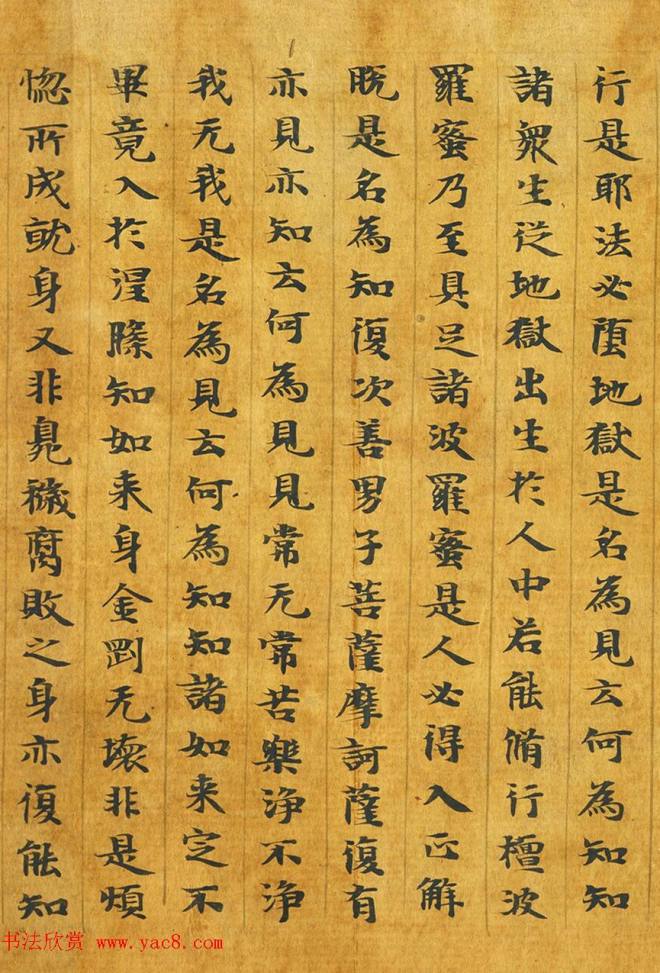 行是耶法必堕地獄是名為見云何為知知
諸衆生從地獄出生於人中若能脩行檀波
羅蜜乃至具足諸波羅蜜是人必得入正解
脱是名為知復次善男子菩薩摩訶薩復有
亦見亦知云何為見見常无常苦樂淨不淨
我无我是名為見云何為知知諸如来定不
畢竟入於涅槃知如来身金剛无壞非是煩
惚所成就身又非臭穢腐敗之身亦復能知
书法欣赏 www.yac8.com